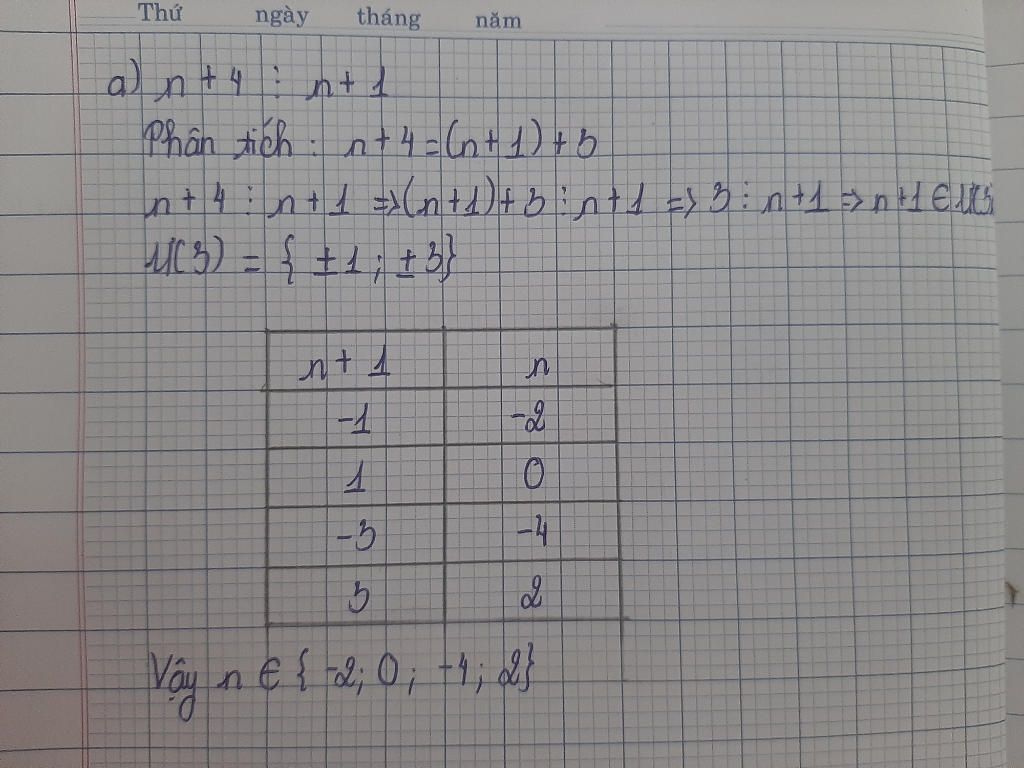 Thứ ngày tháng năm
a) n + 4 ⋮ n + 1
Phân tích : n + 4 = (n + 1) + 3
n + 4 ⋮ n + 1 => (n + 1) + 3 ⋮ n + 1 => 3 ⋮ n + 1 => n + 1 ∈ Ư(3
Ư(3) = { ±1 ; ±3}
n + 1 n
-1 -2
1 0
-3 -4
3 2
Vậy n ∈ { -2; 0 ; -4 ; 2}